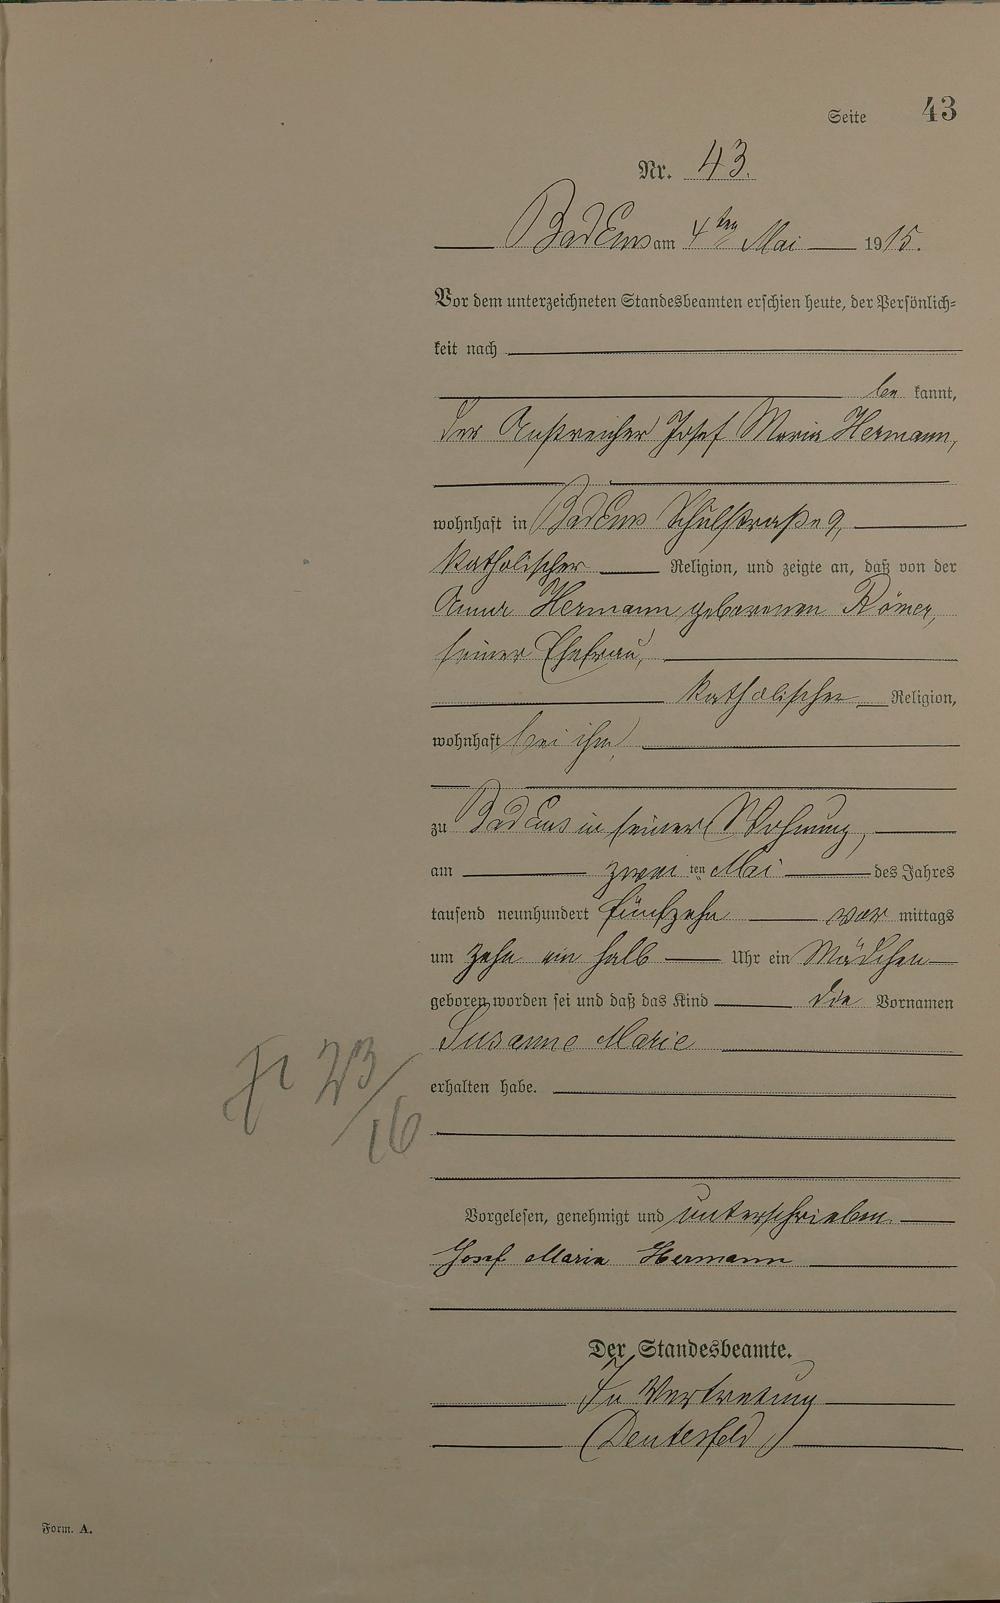 Seite 43
Nr. 43.
Bad Ems am 4ten Mai 1915.
Vor dem unterzeichneten Standesbeamten erschien heute, der Persönlich-
keit nach
be kannt,
der Anstreicher Josef Maria Hermann,
wohnhaft in Bad Ems Schulstraße 9,
katholischer Religion, und zeigte an, daß von der
Anna Hermann geborenen Römer,
seiner Ehefrau,
katholischer Religion,
wohnhaft bei ihm,
zu Bad Ems in seiner Wohnung,
am zwei ten Mai des Jahres
tausend neunhundert fünfzehn vor mittags
um zehn ein halb Uhr ein Mädchen
geboren worden sei und daß das Kind die Vornamen
Susanne Marie
erhalten habe.
23/16
Vorgelesen, genehmigt und unterschrieben.
Josef Maria Hermann
Der Standesbeamte.
In Vertretung
(Deutesfeld)
Form. A.